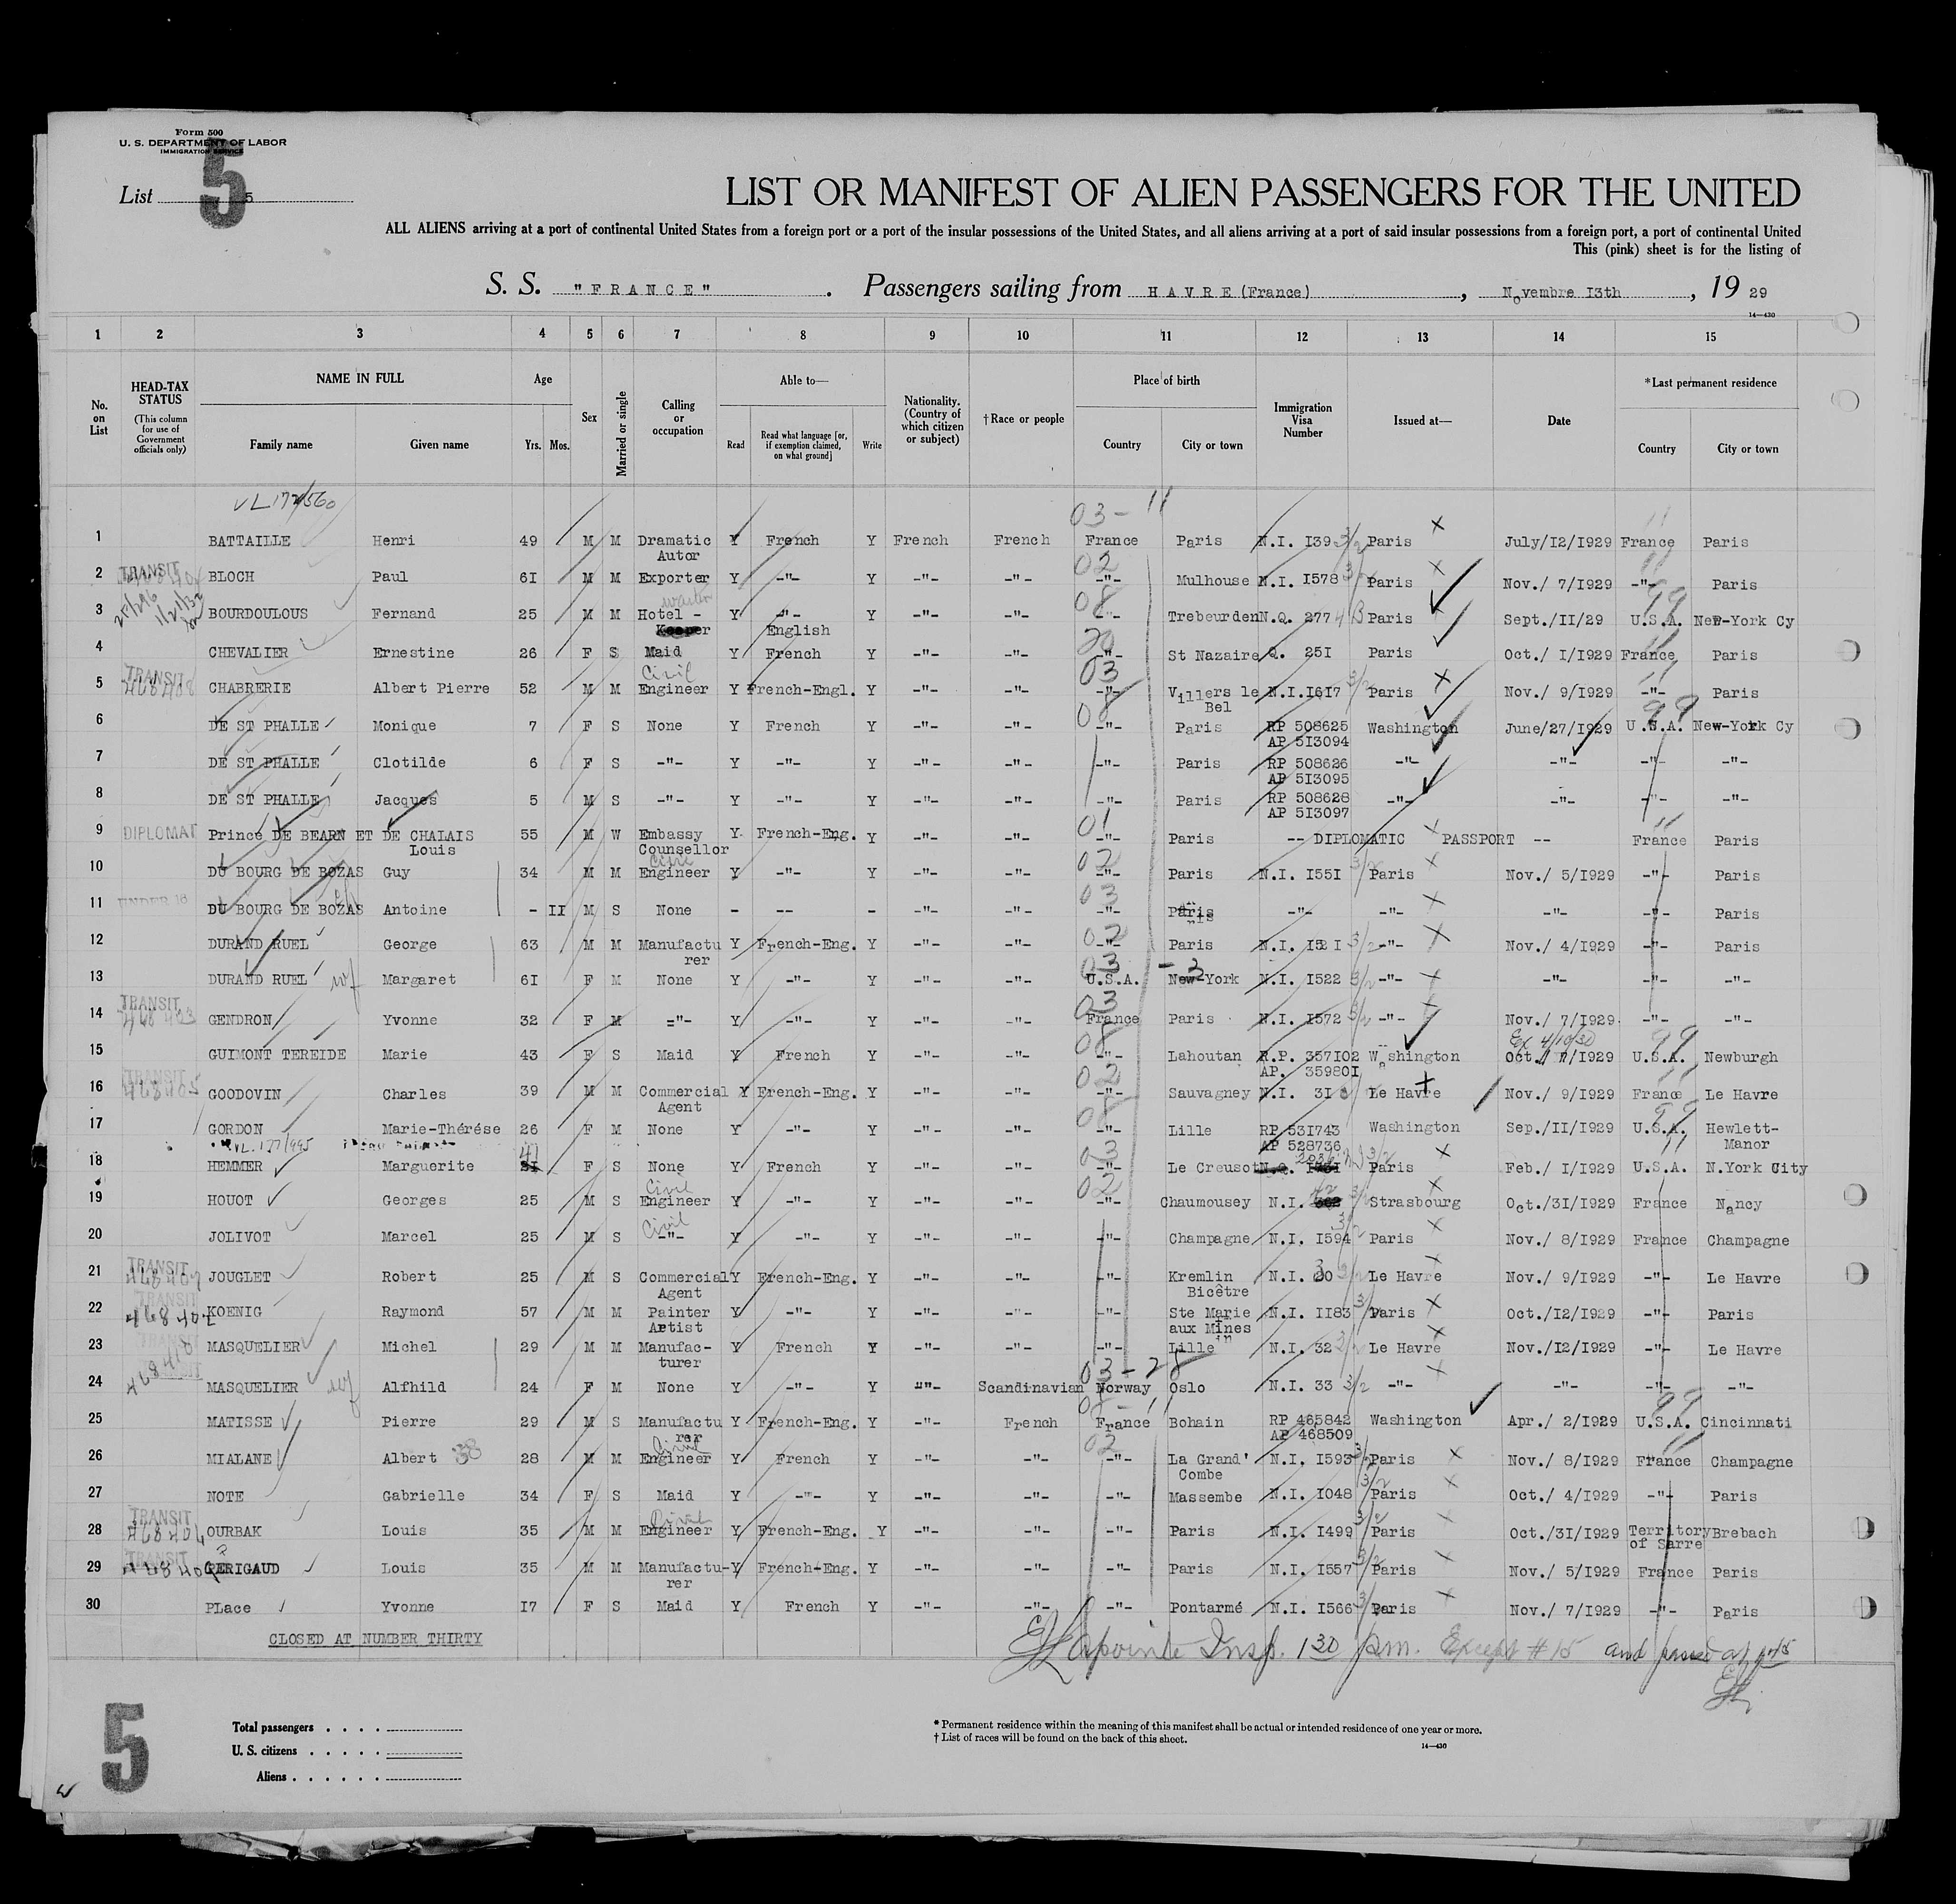 Form 500
U. S. DEPARTMENT OF LABOR
IMMIGRATION SERVICE
5
List 5
LIST OR MANIFEST OF ALIEN PASSENGERS FOR THE UNITED
ALL ALIENS arriving at a port of continental United States from a foreign port or a port of the insular possessions of the United States, and all aliens arriving at a port of said insular possessions from a foreign port, a port of continental United
This (pink) sheet is for the listing of
S. S. "FRANCE". Passengers sailing from HAVRE (France), Novembre I3th, 19 29
14—430
1 2 3 4 5 6 7 8 9 10 11 12 13 14 15
No. on List
HEAD-TAX STATUS (This column for use of Government officials only)
NAME IN FULL Family name Given name
Age Yrs. Mos.
Sex
Married or single
Calling or occupation
Able to— Read Read what language [or, if exemption claimed, on what ground] Write
Nationality. (Country of which citizen or subject)
†Race or people
Place of birth Country City or town
Immigration Visa Number
Issued at—
Date
*Last permanent residence Country City or town
03 - 11
1 BATTAILLE Henri 49 M M Dramatic Autor Y French Y French French France Paris N.I. I39 3/2 Paris X July/I2/I929 France Paris
2 TRANSIT BLOCH Paul 6I M M Exporter Y -"- Y -"- -"- 02 -"- Mulhouse N.I. I578 Paris X Nov./ 7/I929 -"- Paris
3 BOURDOULOUS Fernand 25 M M Hotel - Keeper waiter Y -"- English Y -"- -"- 08 -"- Trebeurden N.Q. 277 Paris Sept./II/29 U.S.A. New-York Cy
4 CHEVALIER Ernestine 26 F S Maid Y French Y -"- -"- 20 -"- St Nazaire Q. 25I Paris Oct./ I/I929 France Paris
5 TRANSIT 468408 CHABRERIE Albert Pierre 52 M M Civil Engineer Y French-Engl. Y -"- -"- 03 -"- Villers le Bel N.I.I6I7 3/2 Paris X Nov./ 9/I929 -"- Paris
6 DE ST PHALLE Monique 7 F S None Y French Y -"- -"- 08 -"- Paris RP 508625 AP 5I3094 Washington June/27/I929 99 U.S.A. New-York Cy
7 DE ST PHALLE Clotilde 6 F S -"- Y -"- Y -"- -"- -"- Paris RP 508626 AP 5I3095 -"- -"- -"- -"-
8 DE ST PHALLE Jacques 5 M S -"- Y -"- Y -"- -"- -"- Paris RP 508628 AP 5I3097 -"- -"- -"- -"-
9 DIPLOMAT Prince DE BEARN ET DE CHALAIS Louis 55 M W Embassy Counsellor Y French-Eng. Y -"- -"- 01 -"- Paris -- DIPLOMATIC X PASSPORT -- France Paris
10 DU BOURG DE BOZAS Guy 34 M M Civil Engineer Y -"- Y -"- -"- 02 -"- Paris N.I. I55I 3/2 Paris X Nov./ 5/I929 -"- Paris
11 UNDER 16 DU BOURG DE BOZAS Antoine - II M S None - -- - -"- -"- 03 -"- Paris -"- -"- X -"- -"- Paris
12 DURAND RUEL George 63 M M Manufactu rer Y French-Eng. Y -"- -"- 02 -"- Paris N.I. I52I 3/2 -"- X Nov./ 4/I929 -"- Paris
13 DURAND RUEL wf Margaret 6I F M None Y -"- Y -"- -"- 03 - 3 U.S.A. New-York N.I. I522 3/2 -"- X -"- -"- -"-
14 TRANSIT GENDRON Yvonne 32 F M -"- Y -"- Y -"- -"- 03 France Paris N.I. I572 3/2 -"- Nov./ 7/I929 -"- -"-
15 GUIMONT TEREIDE Marie 43 F S Maid Y French Y -"- -"- 08 -"- Lahoutan R.P. 357I02 AP. 35980I Washington Ex 4/10/30 Oct./ 7/I929 99 U.S.A. Newburgh
16 TRANSIT 468405 GOODOVIN Charles 39 M M Commercial Agent Y French-Eng. Y -"- -"- 02 -"- Sauvagney N.I. 3I Le Havre Nov./ 9/I929 France Le Havre
17 GORDON Marie-Thérése 26 F M None Y -"- Y -"- -"- 08 -"- Lille RP 53I743 AP 528736 Washington Sep./II/I929 99 U.S.A. Hewlett-Manor
18 HEMMER Marguerite 41 F S None Y French Y -"- -"- 03 -"- Le Creusot Paris X Feb./ I/I929 U.S.A. N.York City
19 HOUOT Georges 25 M S Civil Engineer Y -"- Y -"- -"- 02 -"- Chaumousey N.I. Strasbourg X Oct./3I/I929 France Nancy
20 JOLIVOT Marcel 25 M S Civil -"- Y -"- Y -"- -"- -"- Champagne N.I. I594 3/2 Paris X Nov./ 8/I929 France Champagne
21 TRANSIT JOUGLET Robert 25 M S Commercial Agent Y French-Eng. Y -"- -"- -"- Kremlin Bicêtre N.I. 30 3/2 Le Havre X Nov./ 9/I929 -"- Le Havre
22 TRANSIT KOENIG Raymond 57 M M Painter Artist Y -"- Y -"- -"- -"- Ste Marie aux Mines N.I. II83 3/2 Paris X Oct./I2/I929 -"- Paris
23 TRANSIT MASQUELIER Michel 29 M M Manufac- turer Y French Y -"- -"- -"- Lille N.I. 32 3/2 Le Havre X Nov./I2/I929 -"- Le Havre
24 MASQUELIER wf Alfhild 24 F M None Y -"- Y -"- Scandinavian 03 - 28 Norway Oslo N.I. 33 3/2 -"- X -"- -"- -"-
25 MATISSE Pierre 29 M S Manufactu rer Y French-Eng. Y -"- French France Bohain RP 465842 AP 468509 Washington Apr./ 2/I929 99 U.S.A. Cincinnati
26 MIALANE Albert 38 28 M M Civil Engineer Y French Y -"- -"- 02 -"- La Grand' Combe N.I. I593 3/2 Paris X Nov./ 8/I929 France Champagne
27 NOTE Gabrielle 34 F S Maid Y -"- Y -"- -"- -"- Massembe N.I. I048 3/2 Paris X Oct./ 4/I929 -"- Paris
28 TRANSIT 468404 OURBAK Louis 35 M M Civil Engineer Y French-Eng. Y -"- -"- -"- Paris N.I. I499 Paris X Oct./3I/I929 Territory of Sarre Brebach
29 TRANSIT PERIGAUD Louis 35 M M Manufactu- rer Y French-Eng. Y -"- -"- -"- Paris N.I. I557 3/2 Paris X Nov./ 5/I929 France Paris
30 PLace Yvonne I7 F S Maid Y French Y -"- -"- -"- Pontarmé N.I. I566 3/2 Paris X Nov./ 7/I929 -"- Paris
CLOSED AT NUMBER THIRTY
Lapointe Insp. 1 30 p.m. Except #15 and passed at
5
Total passengers . . . .
U. S. citizens . . . . .
Aliens . . . . . .
* Permanent residence within the meaning of this manifest shall be actual or intended residence of one year or more.
† List of races will be found on the back of this sheet.
14—430